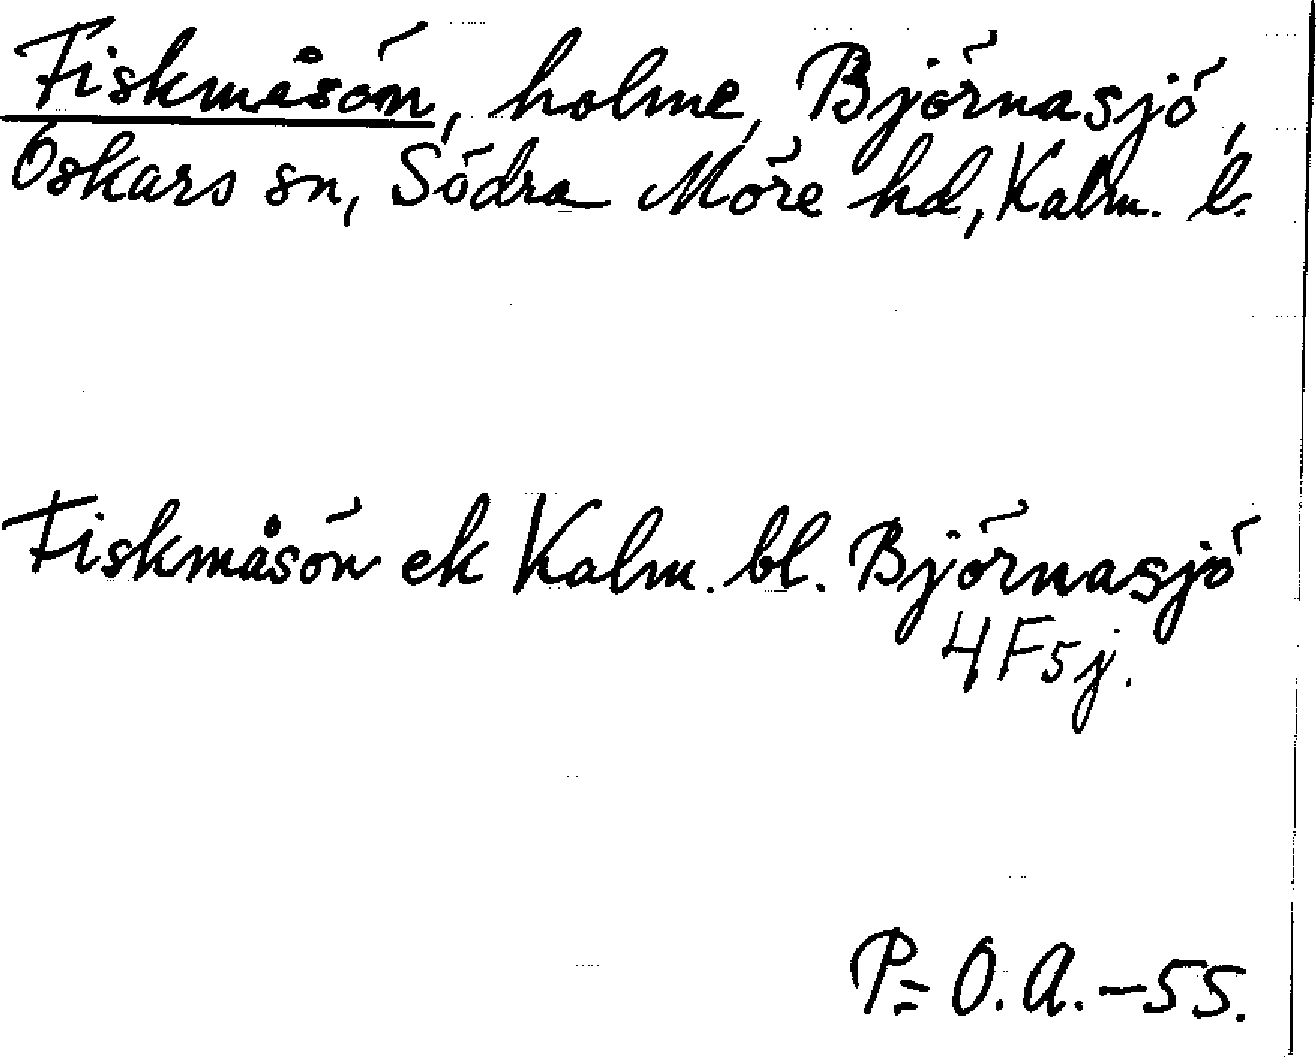 Fiskmåsön, holme, Björnasjö,
Oskars sn, Södra Möre hd, Kalm. l.
Fiskmåsön ek Kalm. bl. Björnasjö
4F5j.
P=O.A.-55.